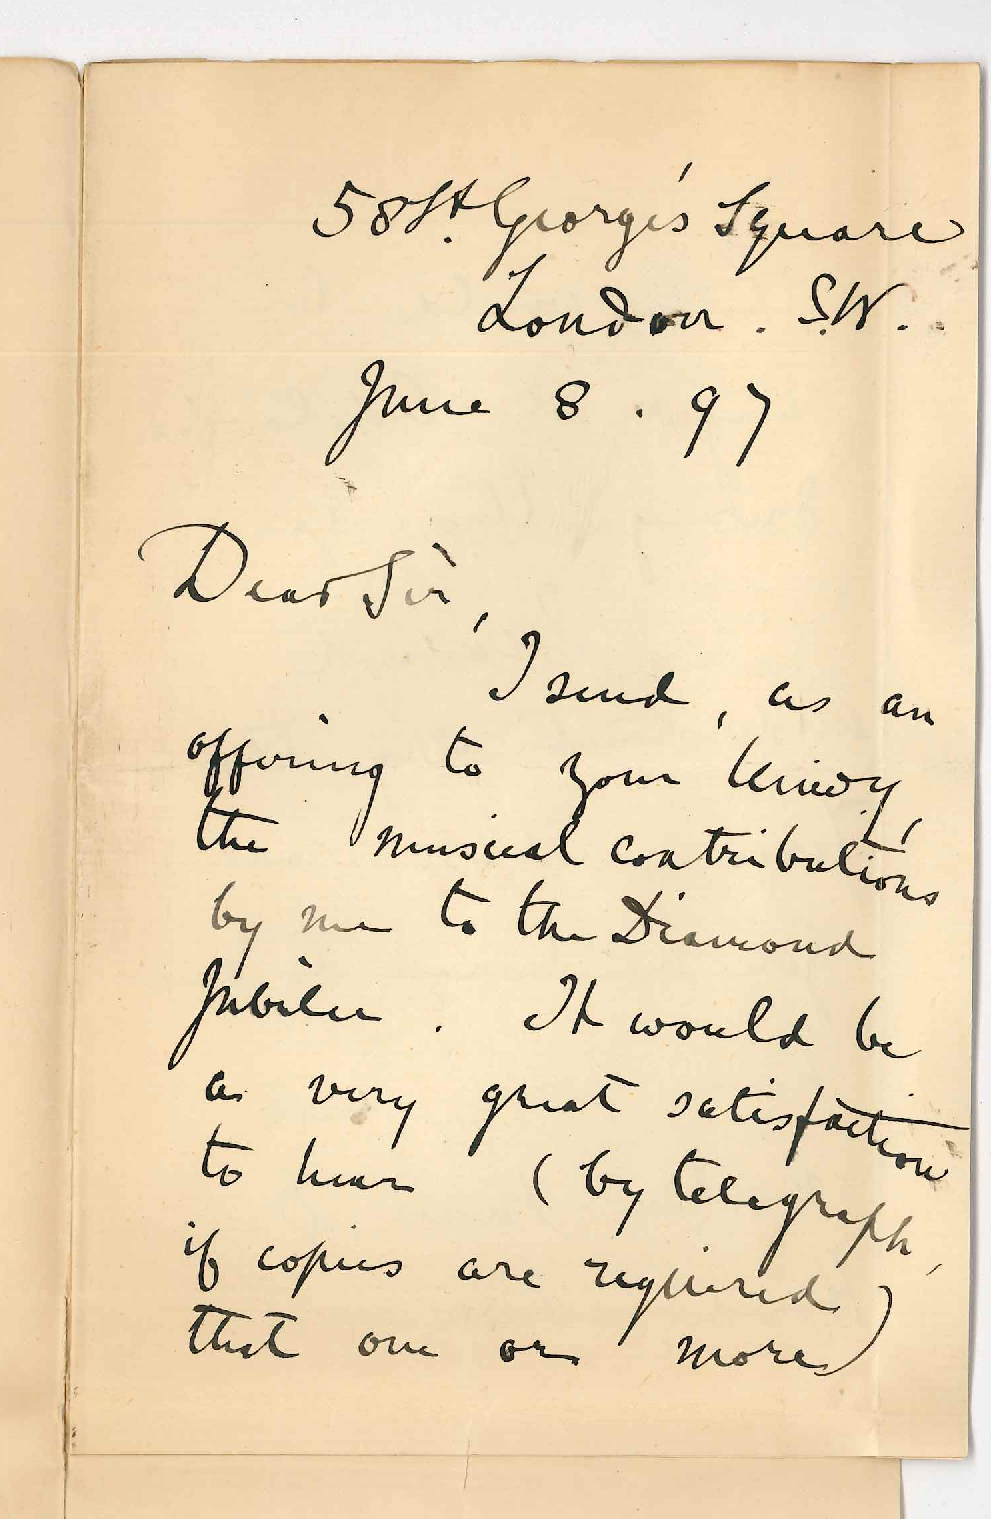 58 St. George's Square
London. S.W.
June 8. 97
Dear Sir,
I send, as an
offering to your
the musical contributions
by me to the Diamond
Jubilee. It would be
a very great satisfaction
to hear (by telegraph,
if copies are required)
that one or more